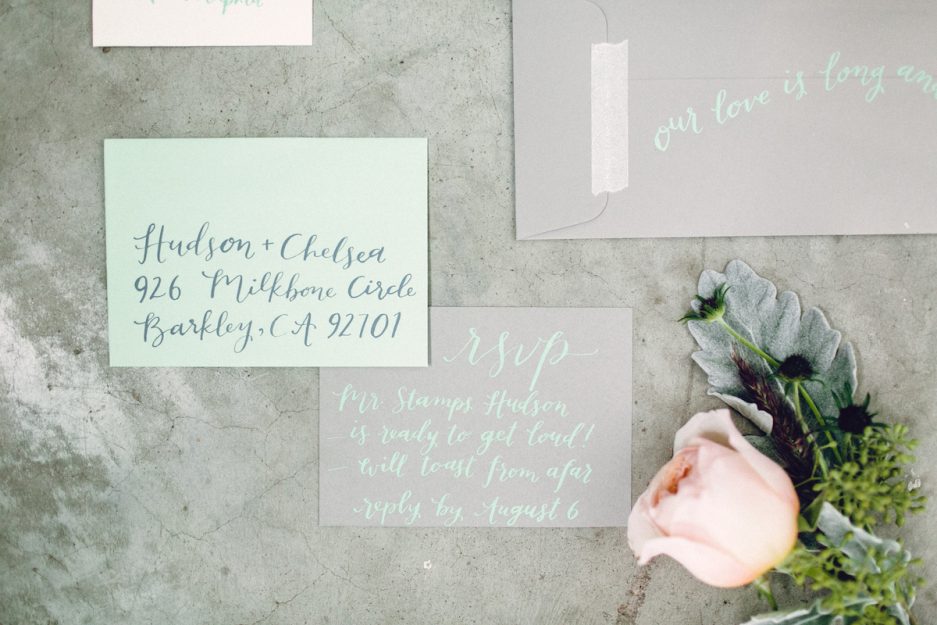 our love is long and
Hudson + Chelsea
926 Milkbone Circle
Barkley, CA 92701
rsvp
Mr. Stamps Hudson
— is ready to get loud!
— will toast from afar
reply by August 6